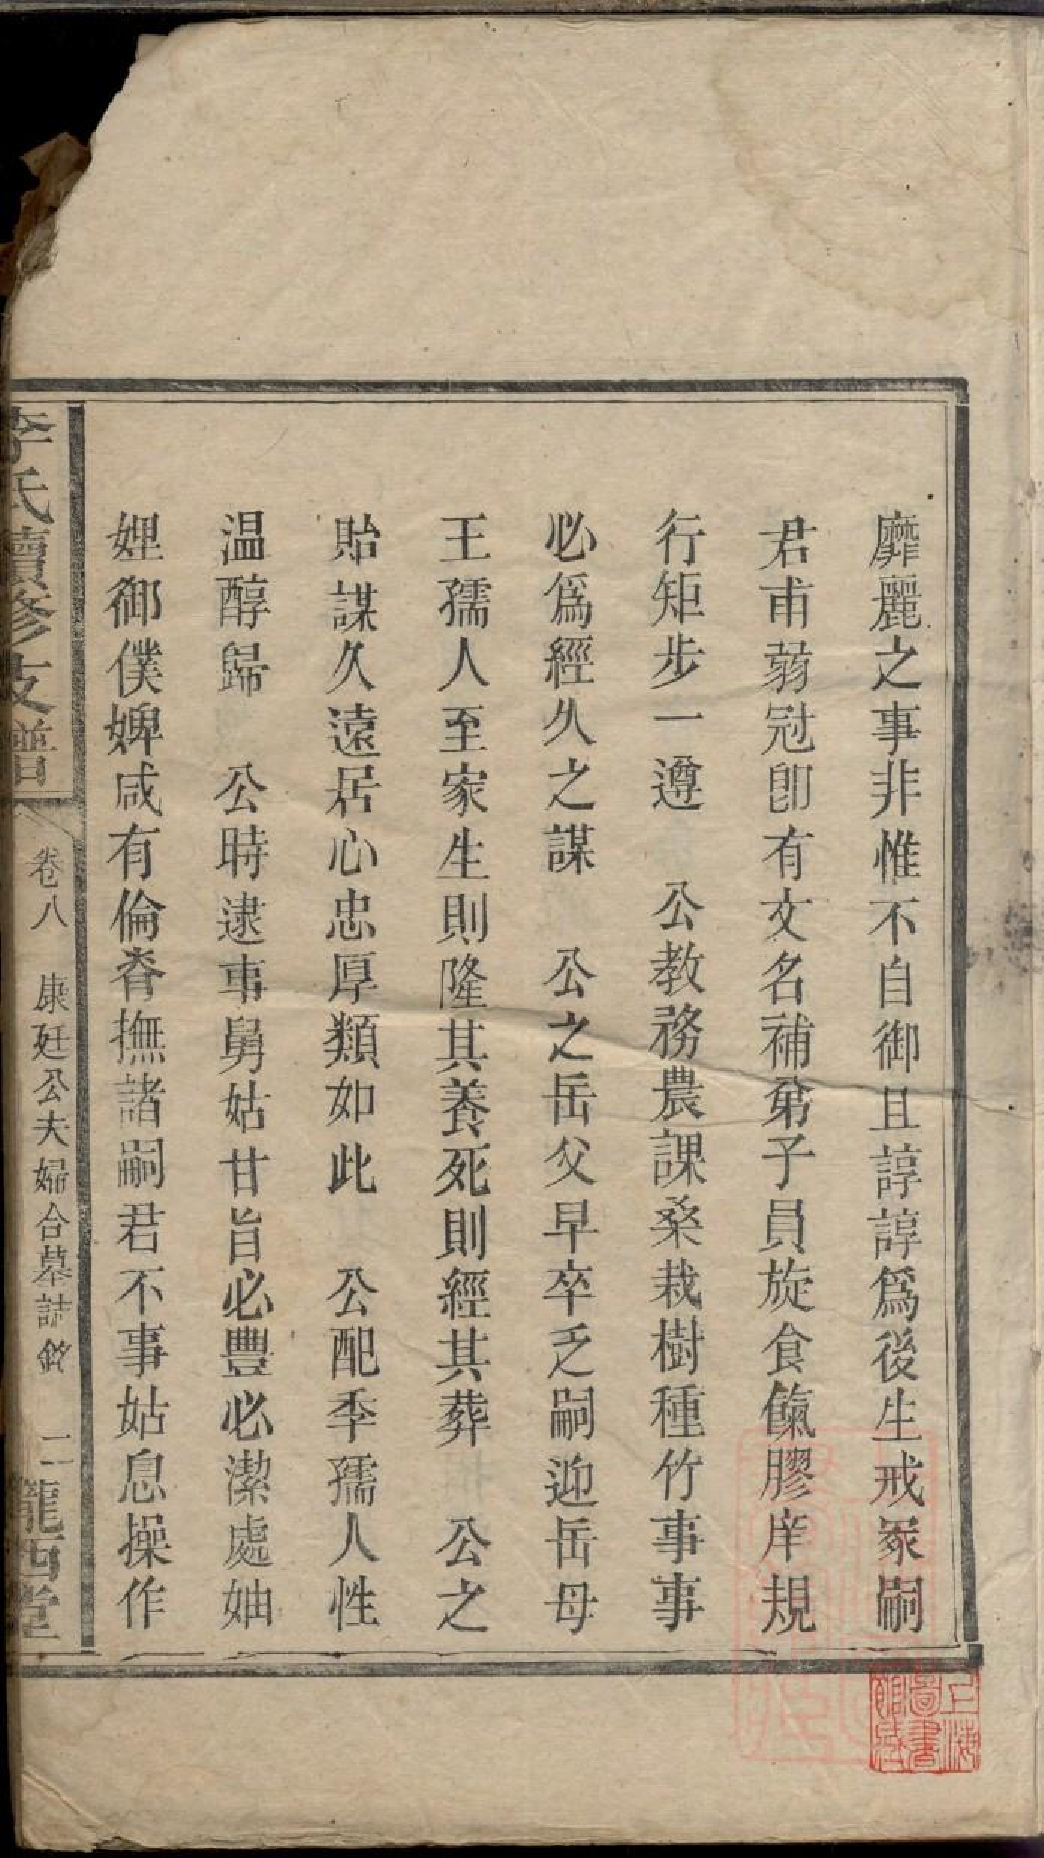 靡麗之事非惟不自御且諄諄爲後生戒冢嗣
君甫弱冠卽有文名補弟子員旋食餼膠庠規
行矩步一遵　公教務農課桑栽樹種竹事事
必爲經久之謀　公之岳父早卒乏嗣迎岳母
王孺人至家生則隆其養死則經其葬　公之
貽謀久遠居心忠厚類如此　公配季孺人性
温醇歸　公時逮事舅姑甘旨必豐必潔處妯
娌御僕婢咸有倫脊撫諸嗣君不事姑息操作
李氏續修支譜
卷八　康廷公夫婦合墓誌銘　二
隴西堂
上海圖書館藏